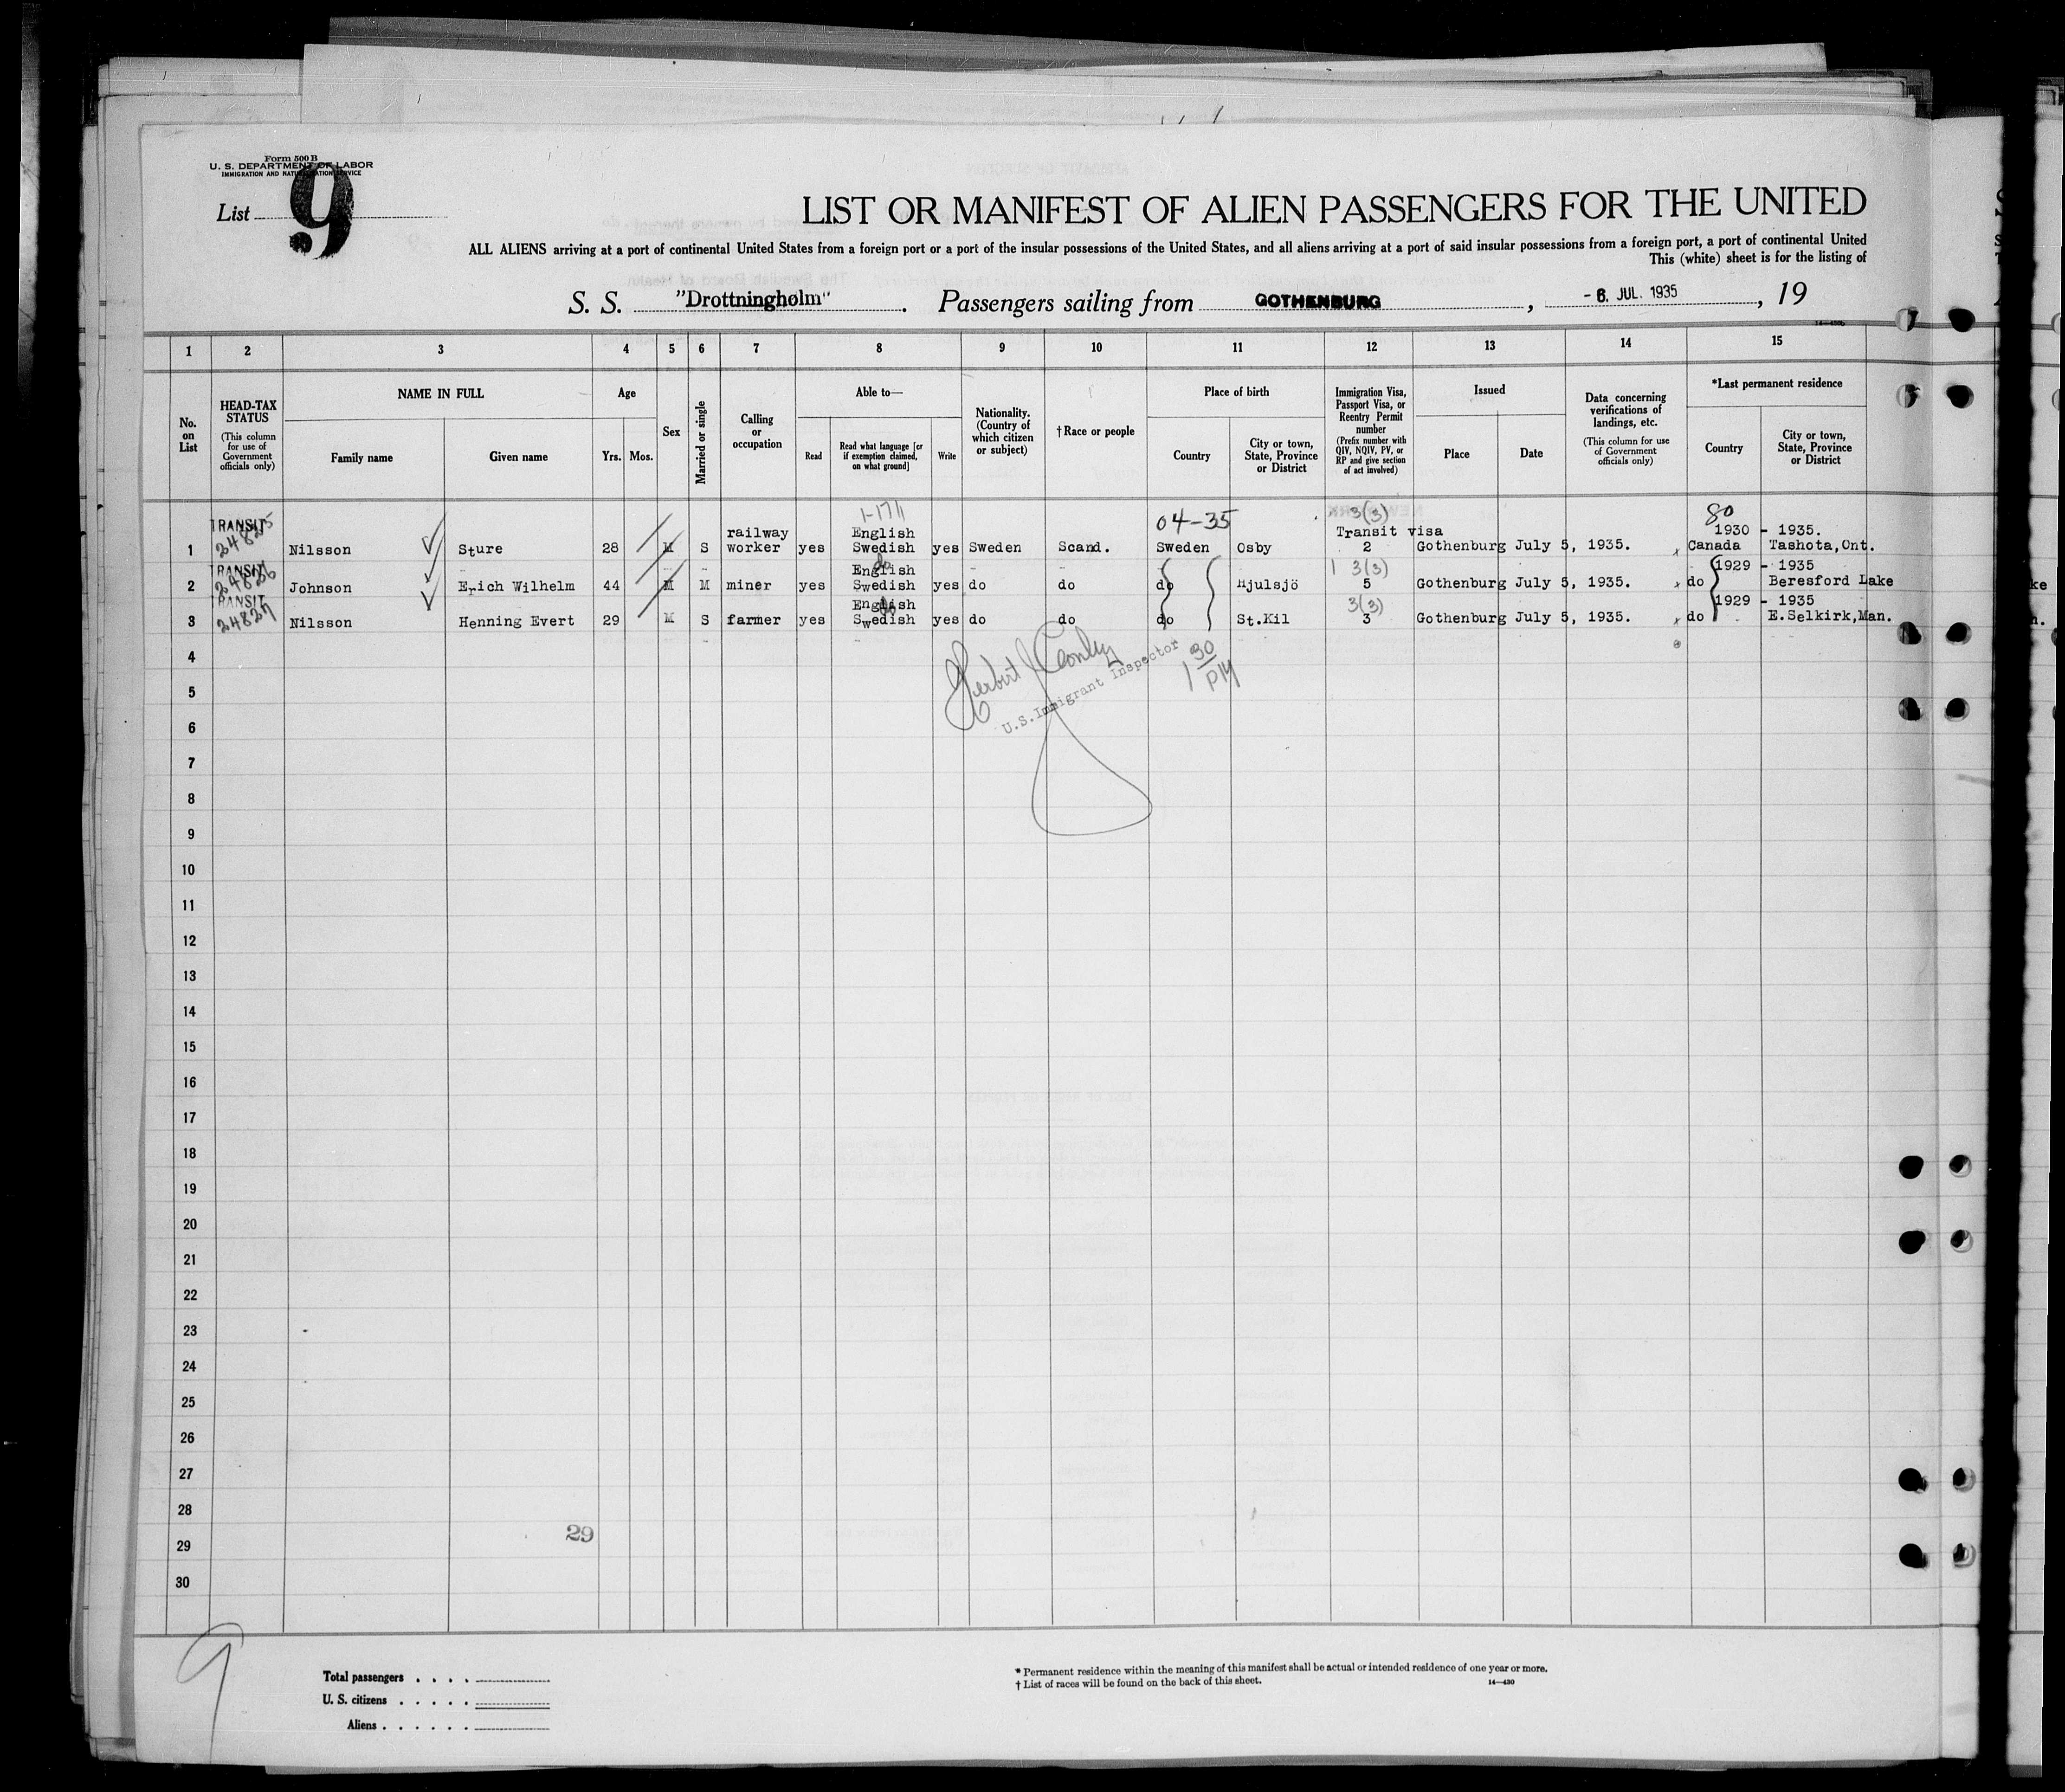 Form 500 B
U. S. DEPARTMENT OF LABOR
IMMIGRATION AND NATURALIZATION SERVICE
List 9
LIST OR MANIFEST OF ALIEN PASSENGERS FOR THE UNITED
ALL ALIENS arriving at a port of continental United States from a foreign port or a port of the insular possessions of the United States, and all aliens arriving at a port of said insular possessions from a foreign port, a port of continental United
This (white) sheet is for the listing of
S. S. "Drottningholm". Passengers sailing from GOTHENBURG, - 6. JUL. 1935, 19
1 2 3 4 5 6 7 8 9 10 11 12 13 14 15
No. on List
HEAD-TAX STATUS
(This column for use of Government officials only)
NAME IN FULL
Family name
Given name
Age
Yrs. Mos.
Sex
Married or single
Calling or occupation
Able to—
Read
Read what language [or if exemption claimed, on what ground]
Write
Nationality. (Country of which citizen or subject)
†Race or people
Place of birth
Country
City or town, State, Province or District
Immigration Visa, Passport Visa, or Reentry Permit number
(Prefix number with QIV, NQIV, PV, or RP and give section of act involved)
Issued
Place
Date
Data concerning verifications of landings, etc.
(This column for use of Government officials only)
*Last permanent residence
Country
City or town, State, Province or District
04-35 3(3) 80
TRANSIT railway English Transit visa 1930 - 1935.
1 24825 Nilsson Sture 28 M S worker yes Swedish yes Sweden Scand. Sweden Osby 2 Gothenburg July 5, 1935. Canada Tashota,Ont.
TRANSIT English 3(3) 1929 - 1935
2 24826 Johnson Erich Wilhelm 44 M M miner yes Swedish yes do do do Hjulsjö 5 Gothenburg July 5, 1935. do Beresford Lake
TRANSIT English 3(3) 1929 - 1935
3 24827 Nilsson Henning Evert 29 M S farmer yes Swedish yes do do do St.Kil 3 Gothenburg July 5, 1935. do E.Selkirk,Man.
4
Herbert J
U.S.Immigrant Inspector
1 30 PM
5
6
7
8
9
10
11
12
13
14
15
16
17
18
19
20
21
22
23
24
25
26
27
28
29
29
30
9
Total passengers . . . .
U. S. citizens . . . . .
Aliens . . . . . .
* Permanent residence within the meaning of this manifest shall be actual or intended residence of one year or more.
† List of races will be found on the back of this sheet.
14—430